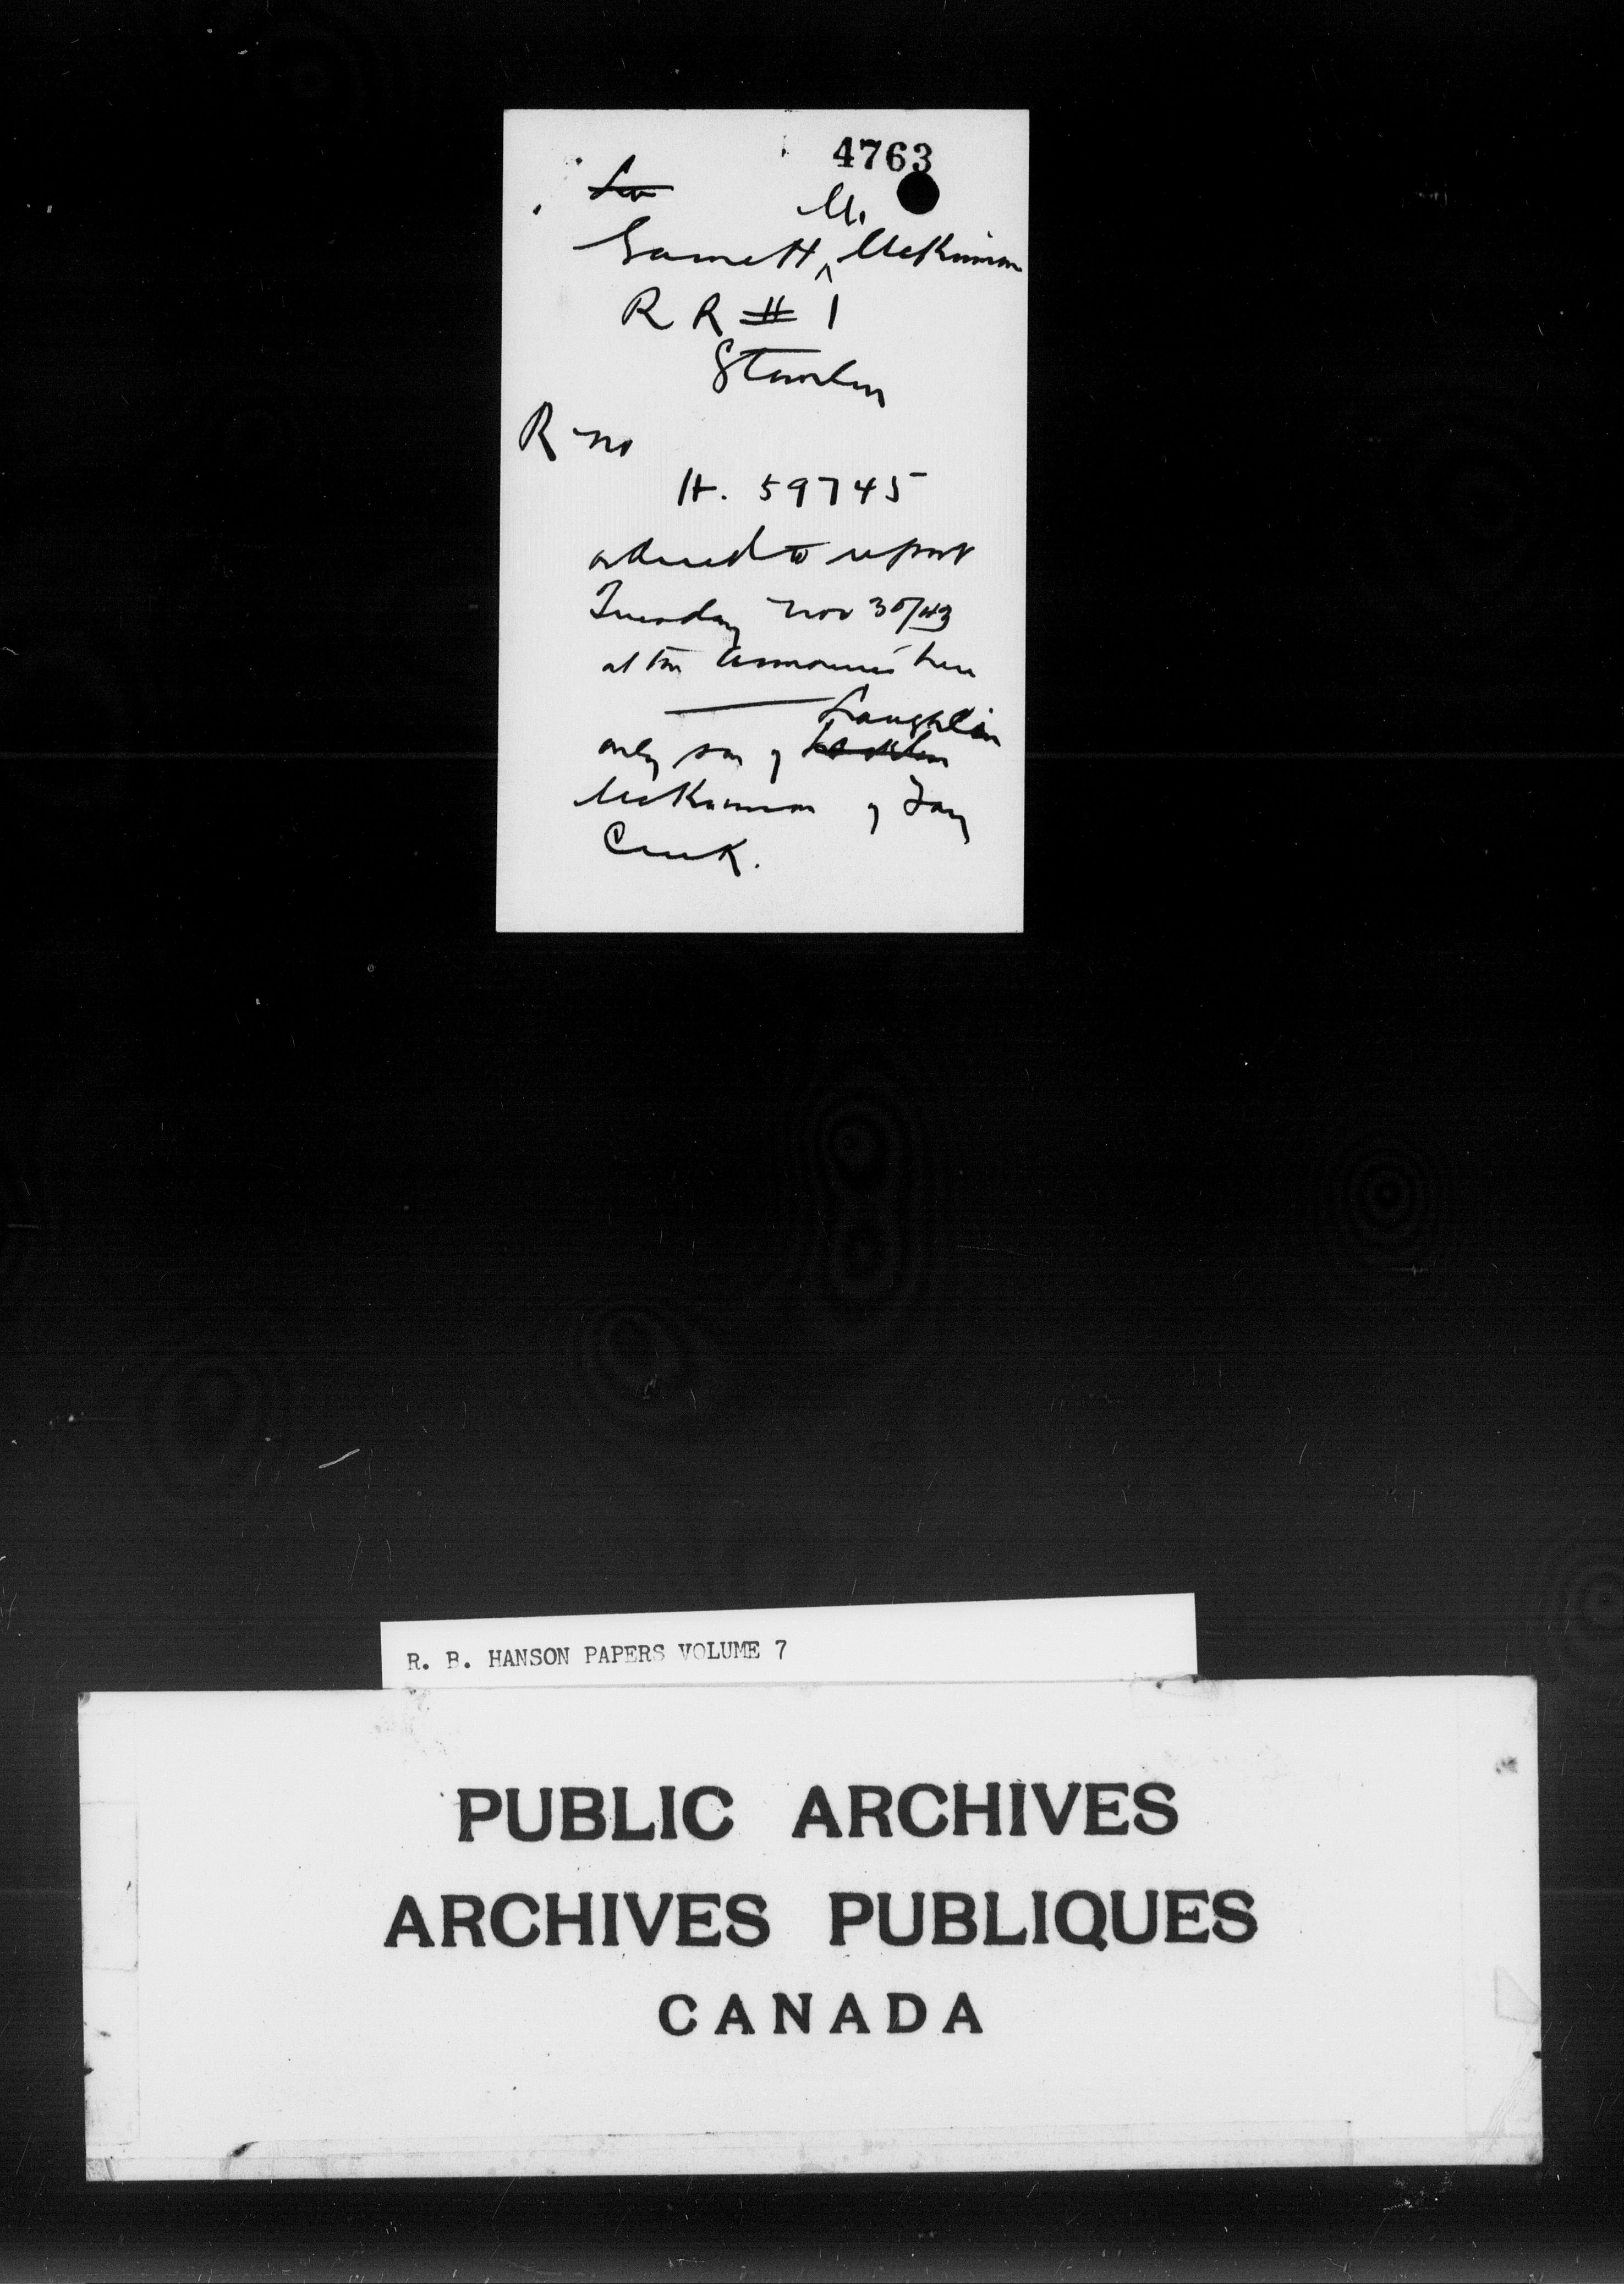 4763
M.
Garnett ^ McKinnon
R R # 1
Stanley
R no
H. 59745
ordered to report
Tuesday Nov 30/43
at the Armouries here
Laughlin
only son of
McKinnon of Tay
Creek.
R. B. HANSON PAPERS VOLUME 7
PUBLIC ARCHIVES
ARCHIVES PUBLIQUES
CANADA